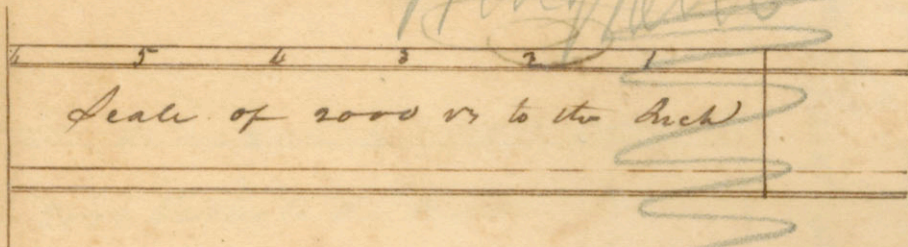 6 5 4 3 2 1
Scale of 2000 vs to the Inch